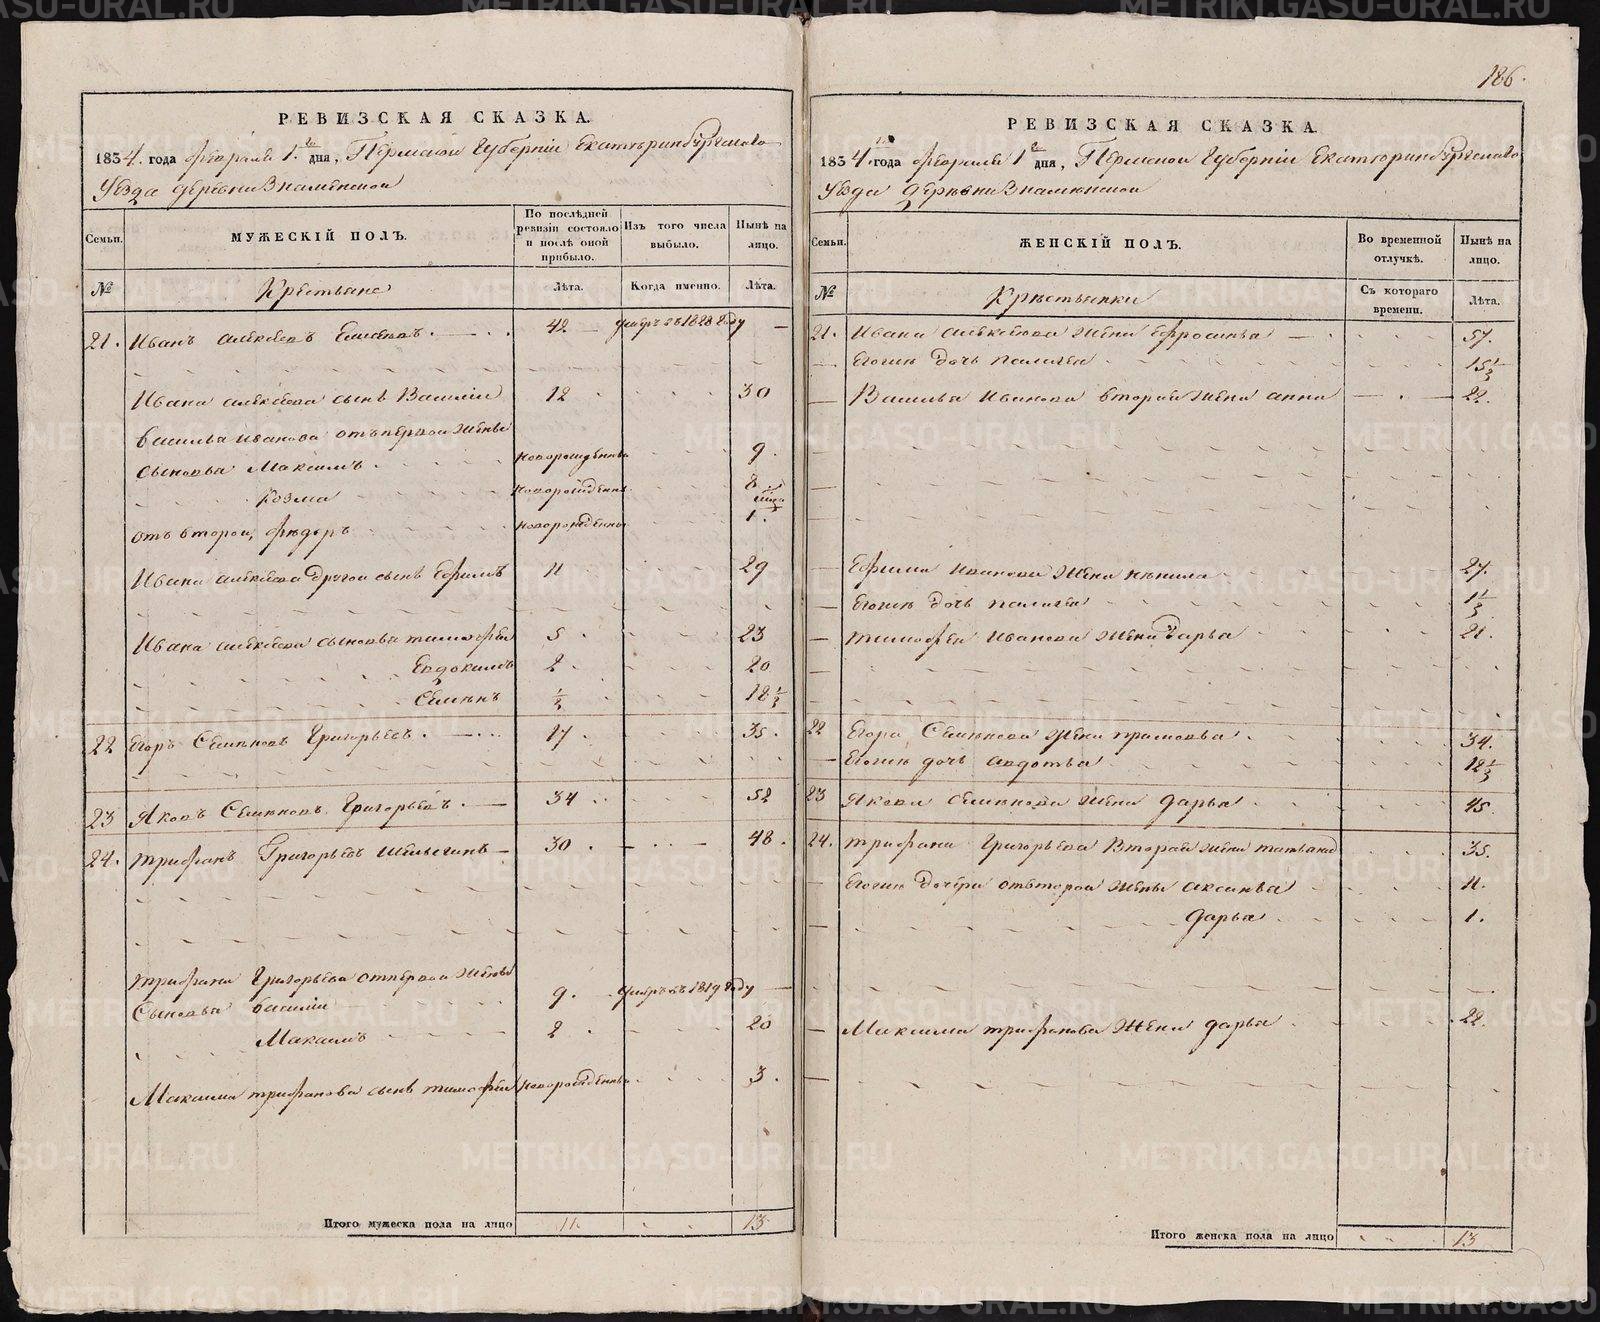 186.
РЕВИЗСКАЯ СКАЗКА.
1834. года февраля 1. дня, Пермской Губернии Екатеринбургскаго
Уезда деревни Знаменской
Семьи. МУЖЕСКІЙ ПОЛЪ. По послѣдней ревизіи состояло и послѣ оной прибыло. Изъ того числа выбыло. Нынѣ на лицо.
№ Крестьяне Лѣта. Когда именно. Лѣта.
21. Иванъ Алексѣевъ 42 умръ въ 1828 году —
Ивана Алексѣева сынъ Василій 12 30
Василья Иванова отъ первой жены
сыновья Максимъ новорожденъ 9.
Козма новорожденъ 8
отъ второй, Федоръ новорожденъ 1.
Ивана Алексѣева другой сынъ Ефимъ 11 29
Ивана Алексѣева сыновья Тимофей 5 23
Евдокимъ 2. 20
Семенъ ½ 18½
22 Егоръ Семеновъ Григорьевъ. 17. 35.
23 Яковъ Семеновъ Григорьевъ. 34 52
24. Трифанъ Григорьевъ 30. 48.
Трифана Григорьева отъ первой жены
Сыновья Василій 9. умръ въ 1819 году —
Максимъ 2 20
Максима Трифанова сынъ Тимофей новорожденъ 3.
Итого мужеска пола на лицо 11. 13.
РЕВИЗСКАЯ СКАЗКА.
1834. года февраля 1 дня, Пермской Губернии Екатеринбургскаго
Уезда деревни Знаменской
Семьи. ЖЕНСКІЙ ПОЛЪ. Во временной отлучкѣ. Нынѣ на лицо.
№ Крестьянки Съ котораго времени. Лѣта.
21. Ивана Алексѣева жена Ефросинья 57.
Егоже дочь Палагея 15½
Василья Иванова вторая жена Анна 22.
Ефима Иванова жена Ненила 27.
Егоже дочь Палагея 1½
Тимофея Иванова жена Дарья 21.
22 Егора Семенова жена Прасковья 34.
Егоже дочь Авдотья 12½
23 Якова Семенова жена Дарья 45.
24. Трифана Григорьева вторая жена Татьяна 35.
Егоже дочери отъ второй жены Аксинья 11.
Дарья 1.
Максима Трифанова жена Дарья 22.
Итого женска пола на лицо 13
METRIKI.GASO-URAL.RU